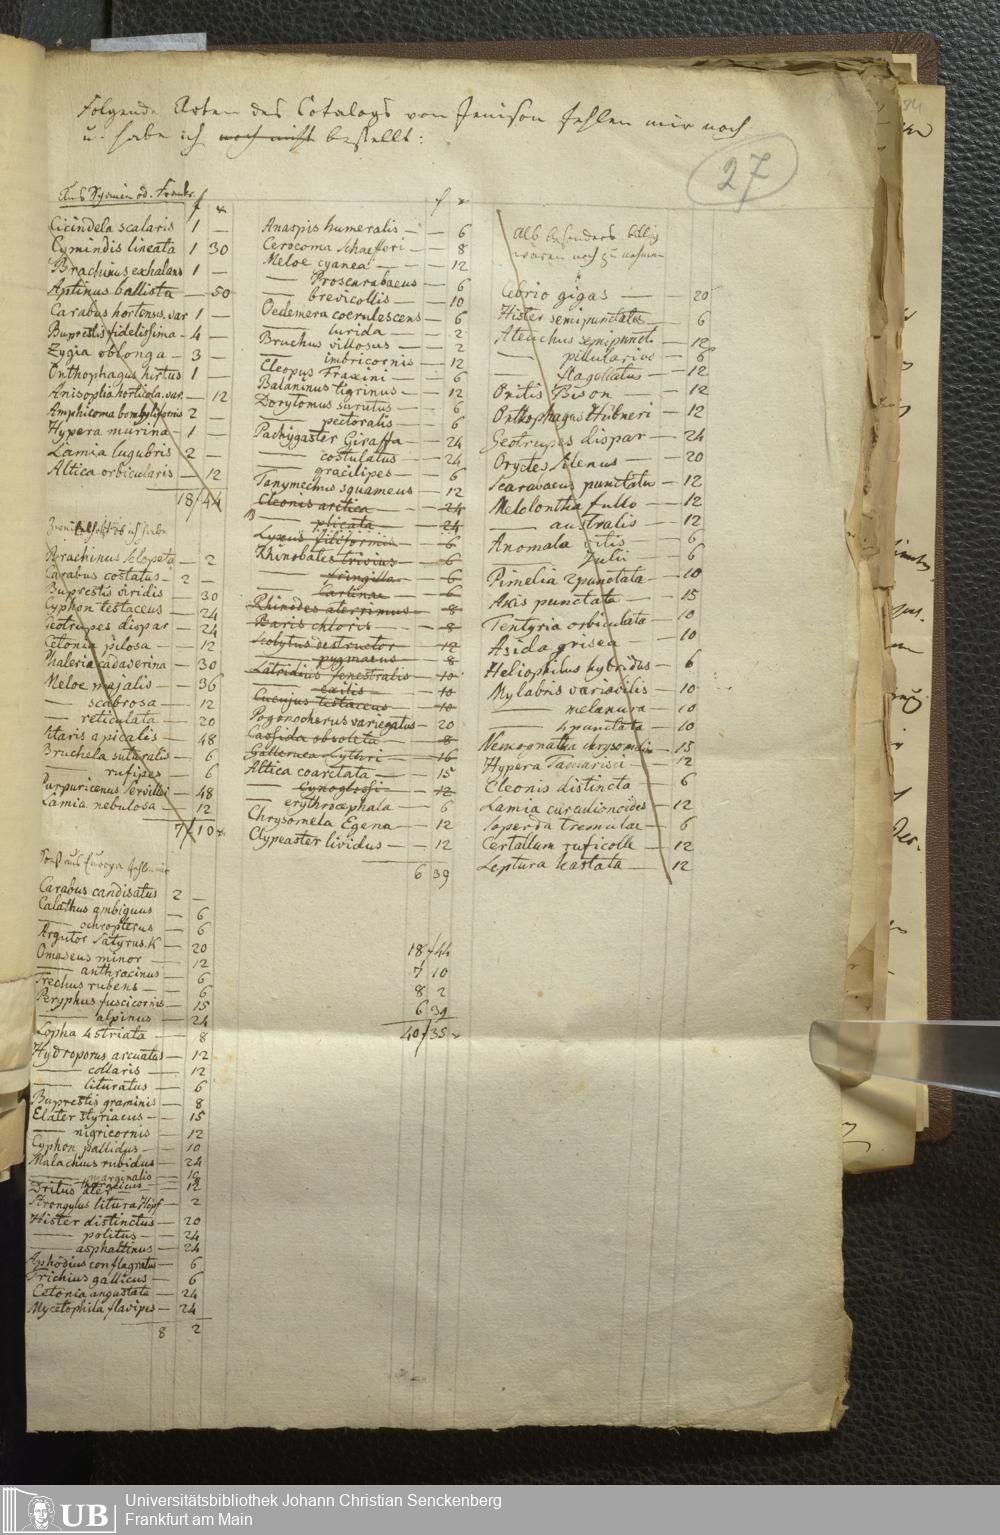 Folgende Arten des Catalogs von Jenison fehlen mir noch
u. habe ich noch nicht bestellt:
27
Cicindela scalaris 1 —
Cymindis lineata 1 30
Brachinus exhalans 1 —
Aptinus ballista — 50
Carabus hortensis. var 1 —
Buprestis fidelissima - 4 —
Zygia oblonga — 3 —
Onthophagus hirtus 1 —
Anisoplia horticola. var. — 12
Amphicoma bombyliformis 2 —
Hypera murina — 1 —
Lamia lugubris 2 —
Altica orbicularis — 12
18 f 44
Brachinus sclopeta — 2
Carabus costatus — 2 —
Buprestis viridis — 30
Cyphon testaceus — 24
Geotrupes dispar — 24
Cetonia pilosa — 12
Phaleria cadaverina — 30
Meloe majalis — 36
— scabrosa — 12
— reticulata — 20
Sitaris apicalis — 48
Bruchela suturalis — 6
— rufipes — 6
Purpuricenus Servillei — 48
Lamia nebulosa — 12
7 f 10 x
Carabus candisatus 2 —
Calathus ambiguus — 6
— ochropterus — 6
Argutor Satyrus. K — 20
Omaseus minor — 12
— anthracinus — 6
Trechus rubens — 6
Peryphus fuscicornis — 15
— alpinus — 24
Lopha 4striata — 8
Hydroporus arcuatus — 12
— collaris — 12
— lituratus — 6
Buprestis graminis — 8
Elater styriacus — 15
— nigricornis — 12
Cyphon pallidus — 10
Malachius rubidus — 24
— marginalis — 16
— thoracicus — 8
Dritus ater — 12
Strongylus litura Hopf — 2
Hister distinctus — 20
— politus — 24
— asphaltinus — 24
Aphodius conflagratus — 6
Trichius gallicus — 6
Cetonia angustata — 24
Mycetophila flavipes — 24
8 2
Anaspis humeralis — 6
Cerocoma Schaefferi — 8
Meloe cyanea — 12
— Proscarabaeus — 6
— brevicollis — 10
Oedemera coerulescens — 6
— lurida — 2
Bruchus villosus — 2
— imbricornis — 12
Cleopus Fraxini — 6
Balaninus tigrinus — 12
Dorytomus — 6
— pectoralis — 6
Pachygaster Giraffa — 24
— costulatus — 24
— gracilipes — 6
Tanymechus squameus — 12
Cleonis arctica — 24
— plicata — 24
Lyxus filiformis — 6
Rhinobates trivius — 6
— fringilla — 6
— Carlinae — 6
Rhinodes aterrimus — 8
Baris chloris — 8
Scolytus destructor — 12
— pygmaeus — 8
Latridius fenestralis — 10
— exilis — 10
Cucujus testaceus — 10
Pogonocherus variegatus — 20
Cassida obsoleta — 8
Galleruca Lythri — 16
Altica coarctata — 15
— Cynoglossi — 12
— erythrocephala — 6
Chrysomela Egena — 12
Clypeaster lividus — 12
6 39
18 f 44
7 10
8 2
6 39
40 f 35 x
als besonders billig
wären noch zu nehmen
Cebrio gigas — 20
Hister semipunctatus — 6
Ateuchus semipunct. — 12
— pillularius — 6
— flagellatus — 12
Onitis Bison — 12
Onthophagus Hübneri — 12
Geotrupes dispar — 24
Oryctes Silenus — 20
Scaravaeus punctatus — 12
Melolontha fullo — 12
— australis — 12
Anomala vitis — 6
— Julii — 6
Pimelia 2punctata — 10
Akis punctata — 15
Tentyria orbiculata — 10
Asida grisea — 10
Heliophilus hybridus — 6
Mylabris variabilis — 10
— melanura — 10
— 4punctata — 10
Nemognatha chrysomelin — 15
Hypera Tamarisci — 12
Cleonis distincta — 6
Lamia curculionoides — 12
Saperda tremulae — 6
Certallum ruficolle — 12
Leptura hastata — 12
UB
Universitätsbibliothek Johann Christian Senckenberg
Frankfurt am Main